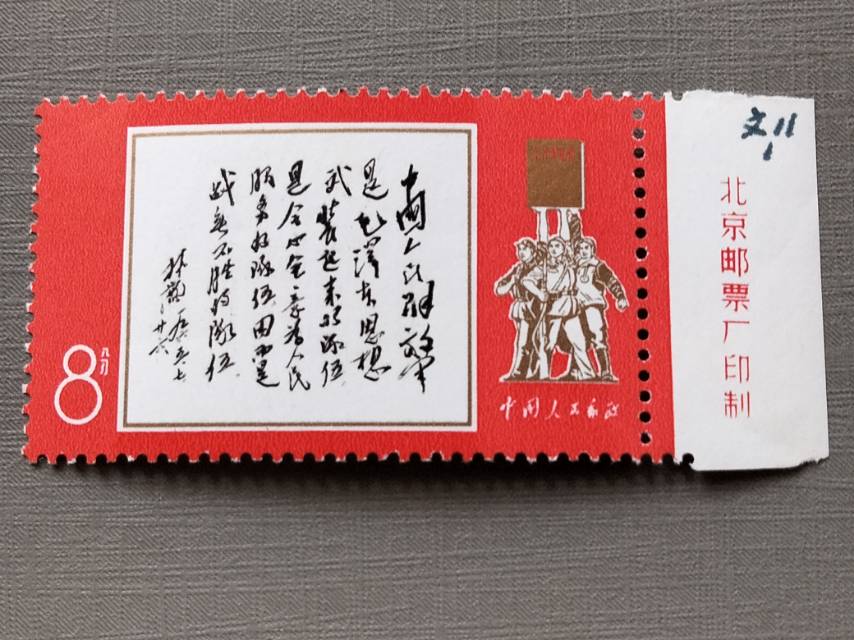 中國人民解放军
是毛澤东思想
武装起来的队伍
是全心全意为人民
服务的队伍因而是
战无不胜的队伍
林彪一九六五 七
廿六
8分
中国人民邮政
文11
北京邮票厂印制